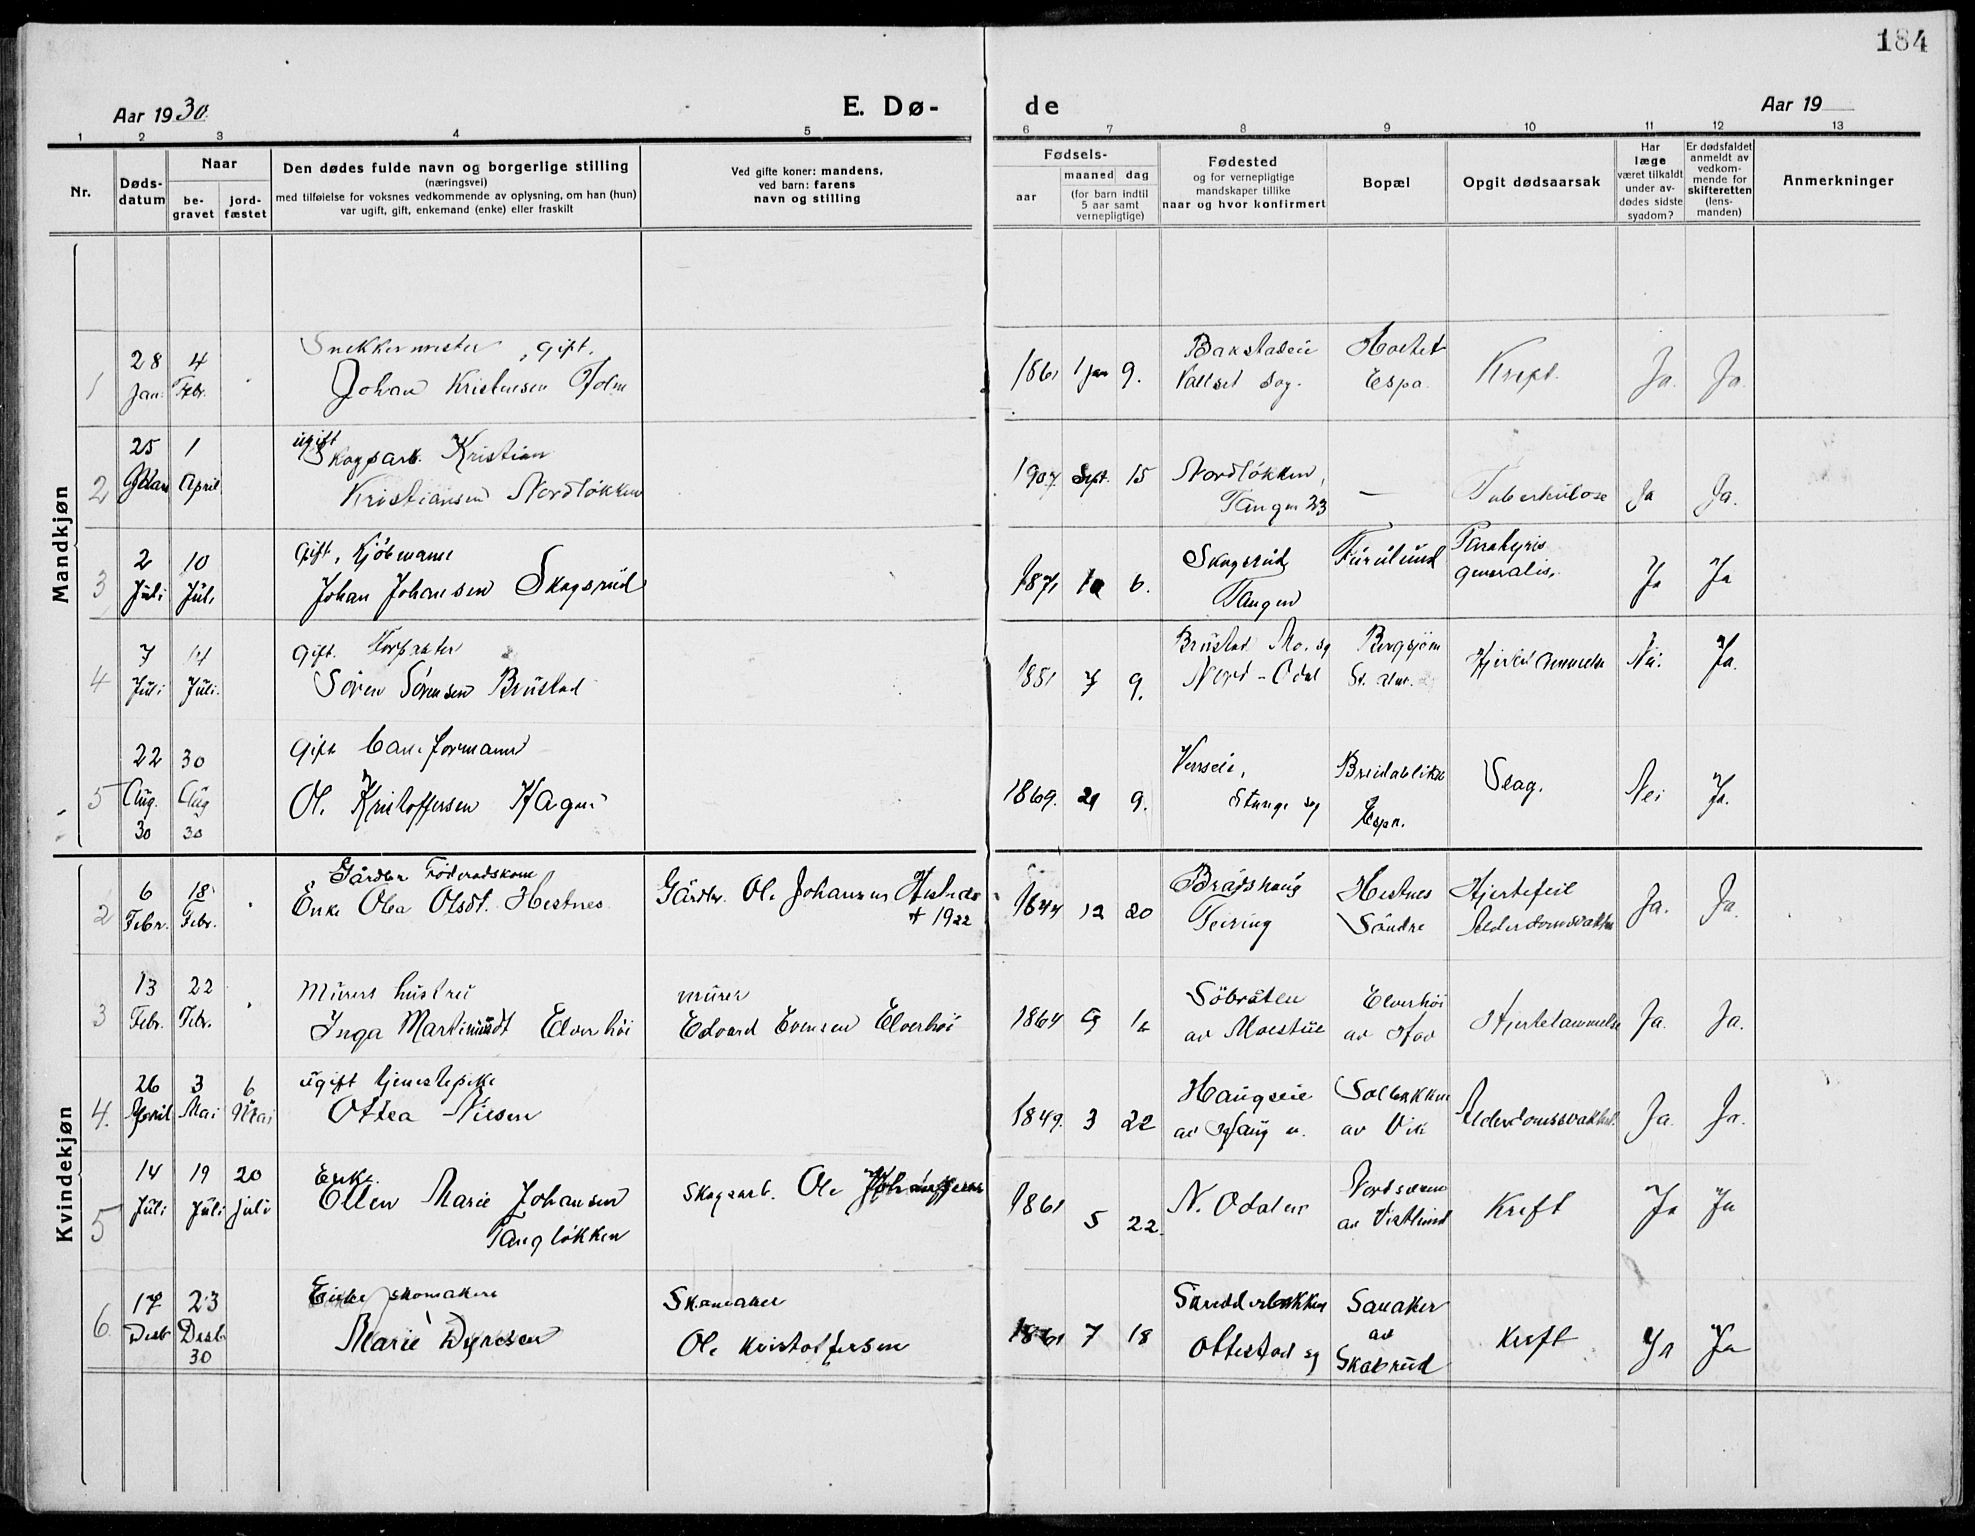 184
Aar 1930.
E. Dø-
de
Aar 19
1 2 3 4 5 6 7 8 9 10 11 12 13
Nr.
Døds-
datum
Naar
be-
gravet
jord-
fæstet
Den dødes fulde navn og borgerlige stilling
(næringsvei)
med tilføielse for voksnes vedkommende av oplysning, om han (hun)
var ugift, gift, enkemand (enke) eller fraskilt
Ved gifte koner: mandens,
ved barn: farens
navn og stilling
Fødsels-
aar
maaned dag
(for barn indtil
5 aar samt
vernepligtige)
Fødested
og for vernepligtige
mandskaper tillike
naar og hvor konfirmert
Bopæl
Opgit dødsaarsak
Har
læge
været tilkaldt
under av-
dødes sidste
sygdom?
Er dødsfaldet
anmeldt av
vedkom-
mende for
skifteretten
(lens-
manden)
Anmerkninger
Mandkjøn
1
28
Jan.
4
Febr.
Snekkermester, gift.
Johan Kristensen Holm
1861 1 jan 9.
Bakstadeie
Vallset sog.
Espa.
Kreft.
Ja.
Ja.
2
25
Mars
1
April
ugift
Skogsarb. Kristian
Kristiansen Nordløkken
1907. Sept. 15
Nordløkken,
Tangen 23
—
Tuberkulose
Ja
Ja.
3
2
Juli
10
Juli
Gift, Kjøbmann
Johan Johansen Skogsrud
1871 10 6.
Skogsrud,
Tangen
Furulund
generalis.
Ja
Ja
4
7
Juli
14
Juli.
Gift.
Søren Sørensen Brustad
1851 7 9.
Brustad Mo. sg
Nord-Odal
Bergsjøen
Nei.
Ja.
5
22
Aug.
30
30
Aug
30
Gift Baneformann
Ole Kristoffersen Hagen
1869. 9.
Stange sog
Breidablikk
Espa.
Slag.
Nei
Ja.
Kvindekjøn
2
6
Febr.
18
Febr.
Gårdbr. Føderadskone
Enke Olea Olsdt. Hestnes
Gårdbr. Ole Johannesen Hestnes
† 1922
1844 12 20
Brådhaug
Feiring
Hestnes
Søndre
Hjertefeil
Alderdomsvakhet
Ja.
Ja.
3
13
Febr.
22
Febr.
Murers hustru
Inga Martinusdt Elverhöi
murer
Edvard Evensen Elverhöi
1864 9
Söbråten
av Moestue
Elverhöi
av Hov
Hjertelammelse
Ja.
Ja.
4.
26
April
3
Mai
6
Mai
ugift tjenestepike
Ottea Nilsen
1849. 3 22
Haugseie
av Haug
Solbakken
av Vik
Alderdomssvakhet.
Ja.
Ja.
5
14
Juli
19
Juli
20
juli
Enke.
Ellen Marie Johansen
Tangløkken
Skogsarb. Ole
1861 5 22.
N. Odalen
Kreft
Ja
Ja
6
17
Desb
23
Desb
30
Enke skomakers
Marie Dyresen
Skomaker
Ole Kristoffersen
1861 7 18
Skredderbakken
Ottestad sg
Sanaker
av
Skabrud
Kreft
Ja
Ja